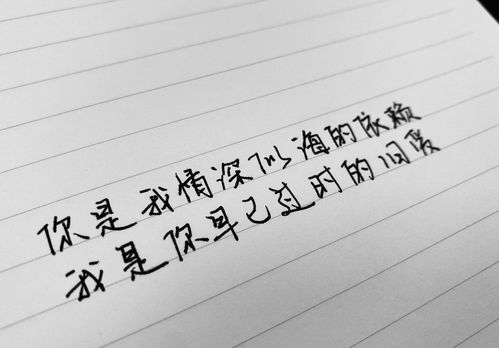 你是我情深似海的依赖
我是你早已过时的旧爱